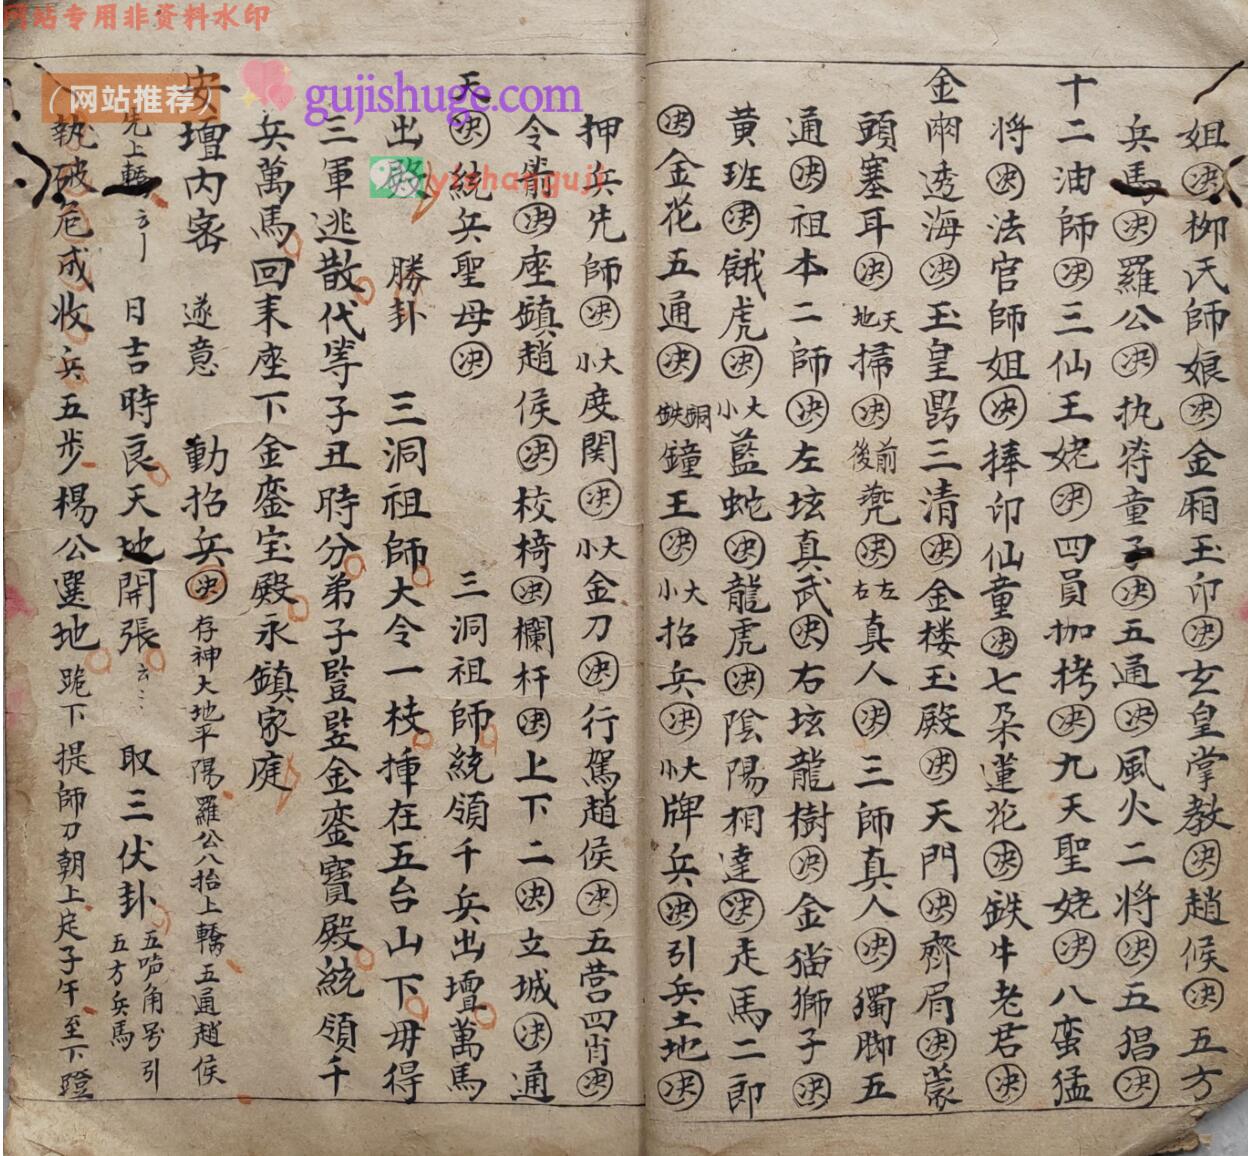 网站专用非资料水印
(网站推荐)
gujishuge.com
yishanguji
姐㊋柳氏師娘決金廂玉印決玄皇掌教決趙候決五方
兵馬決羅公決执符童子決五通決風火二将決五猖決
十二油師決三仙王姥決四員枷栲決九天聖姥決八蛮猛
将決法官師姐決捧印仙童決七朵蓮花決鉄牛老君決
金闹透海決玉皇三清決金楼玉殿決天門決齊肩決蒙
頭塞耳決天地掃決前後決左右真人決三師真人決獨脚五
通決祖本二師決左坛真武決右坛龍樹決金猫獅子決
黄班決餓虎決大小藍蛇決龍虎決陰陽相達決走馬二郎
決金花五通決銅鉄鐘王決大小招兵決大小牌兵決引兵土地決
押兵先師決大小度関決大小金刀決行駕趙侯決五营四肖決
令箭決座鎮趙侯決校椅決欄杆決上下二決立城決通
天決統兵聖母決 三洞祖師統領千兵出壇萬馬
出殿 勝卦 三洞祖師大令一枝挿在五台山下毋得
三軍逃散代等子丑時分弟子豎豎金鑾寶殿統領千
兵萬馬回来座下金鑾宝殿永鎮家庭
安壇内密 遂意 動招兵決存神大地平陽羅公八抬上轎五通趙侯
先上轎云 日吉時良天地開張云 取三伏卦五声角号引五方兵馬
執破危成收兵五步楊公選地跪下 提師刀朝上定子午至下蹬